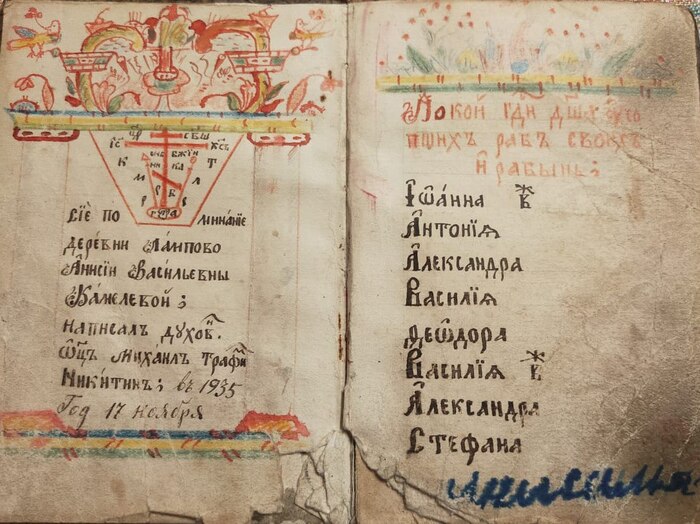 Сїѐ по минанїе
деревни Лампово
Анисїи Васильевны
Камелевой;
написалъ духов.
Ѿцъ Михаилъ Трафи
Никитинъ; въ 1935
Год 17 ноября
Покой гди дш ѹ со
пшихъ рабъ своих
и рабынь;
Іѡанна
Антонїѧ
Александра
Василїѧ
Ѳеѡдора
Василїѧ
Александра
Стефана